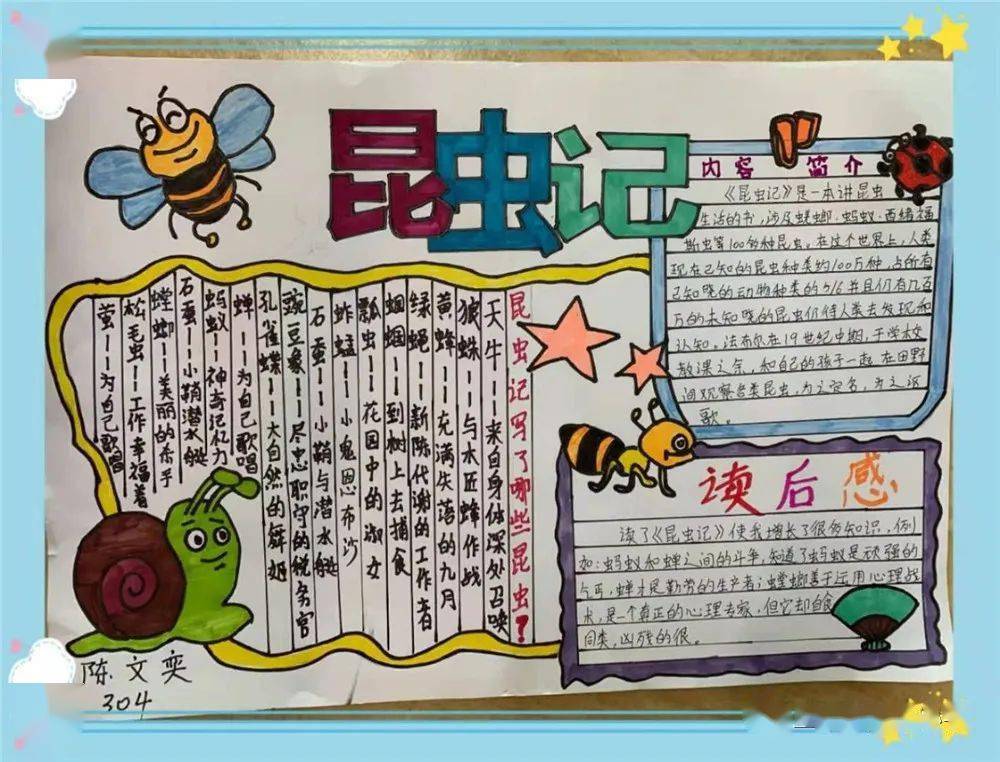 昆虫记
昆虫记写了哪些昆虫?
天牛——来自身体深处召唤
狼蛛——与木匠蜂作战
黄蜂——充满失落的九月
绿蝇——新陈代谢的工作者
蝈蝈——到树上去捕食
瓢虫——花园中的淑女
蚱蜢——小鬼恩布沙
石蚕——小鞘与潜水艇
豌豆象——尽忠职守的税务官
孔雀蝶——大自然的舞姬
蝉——为自己歌唱
蚂蚁——神奇记忆力
石蚕——小鞘潜水艇
螳螂——美丽的杀手
松毛虫——工作幸福着
萤——为自己歌唱
内容简介
《昆虫记》是一本讲昆虫
生活的书,涉及蜣螂·蚂蚁·西绪福
斯虫等100多种昆虫。在这个世界上,人类
现在已知的昆虫种类约100万种,占所有
已知晓的动物种类的5/6并且仍有几百
万的未知晓的昆虫仍待人类去发现和
认知。法布尔在19世纪中期,于学校
放课之余,和自己的孩子一起在田野
间观察各类昆虫,为之定名,为之讴
歌。
读后感
读了《昆虫记》使我增长了很多知识,例
如:蚂蚁和蝉之间的斗争,知道了蚂蚁是顽强的
乞丐,蝉才是勤劳的生产者;螳螂善于运用心理战
术,是一个真正的心理专家,但它却自食
同类,凶残的很。
陈文奕
304